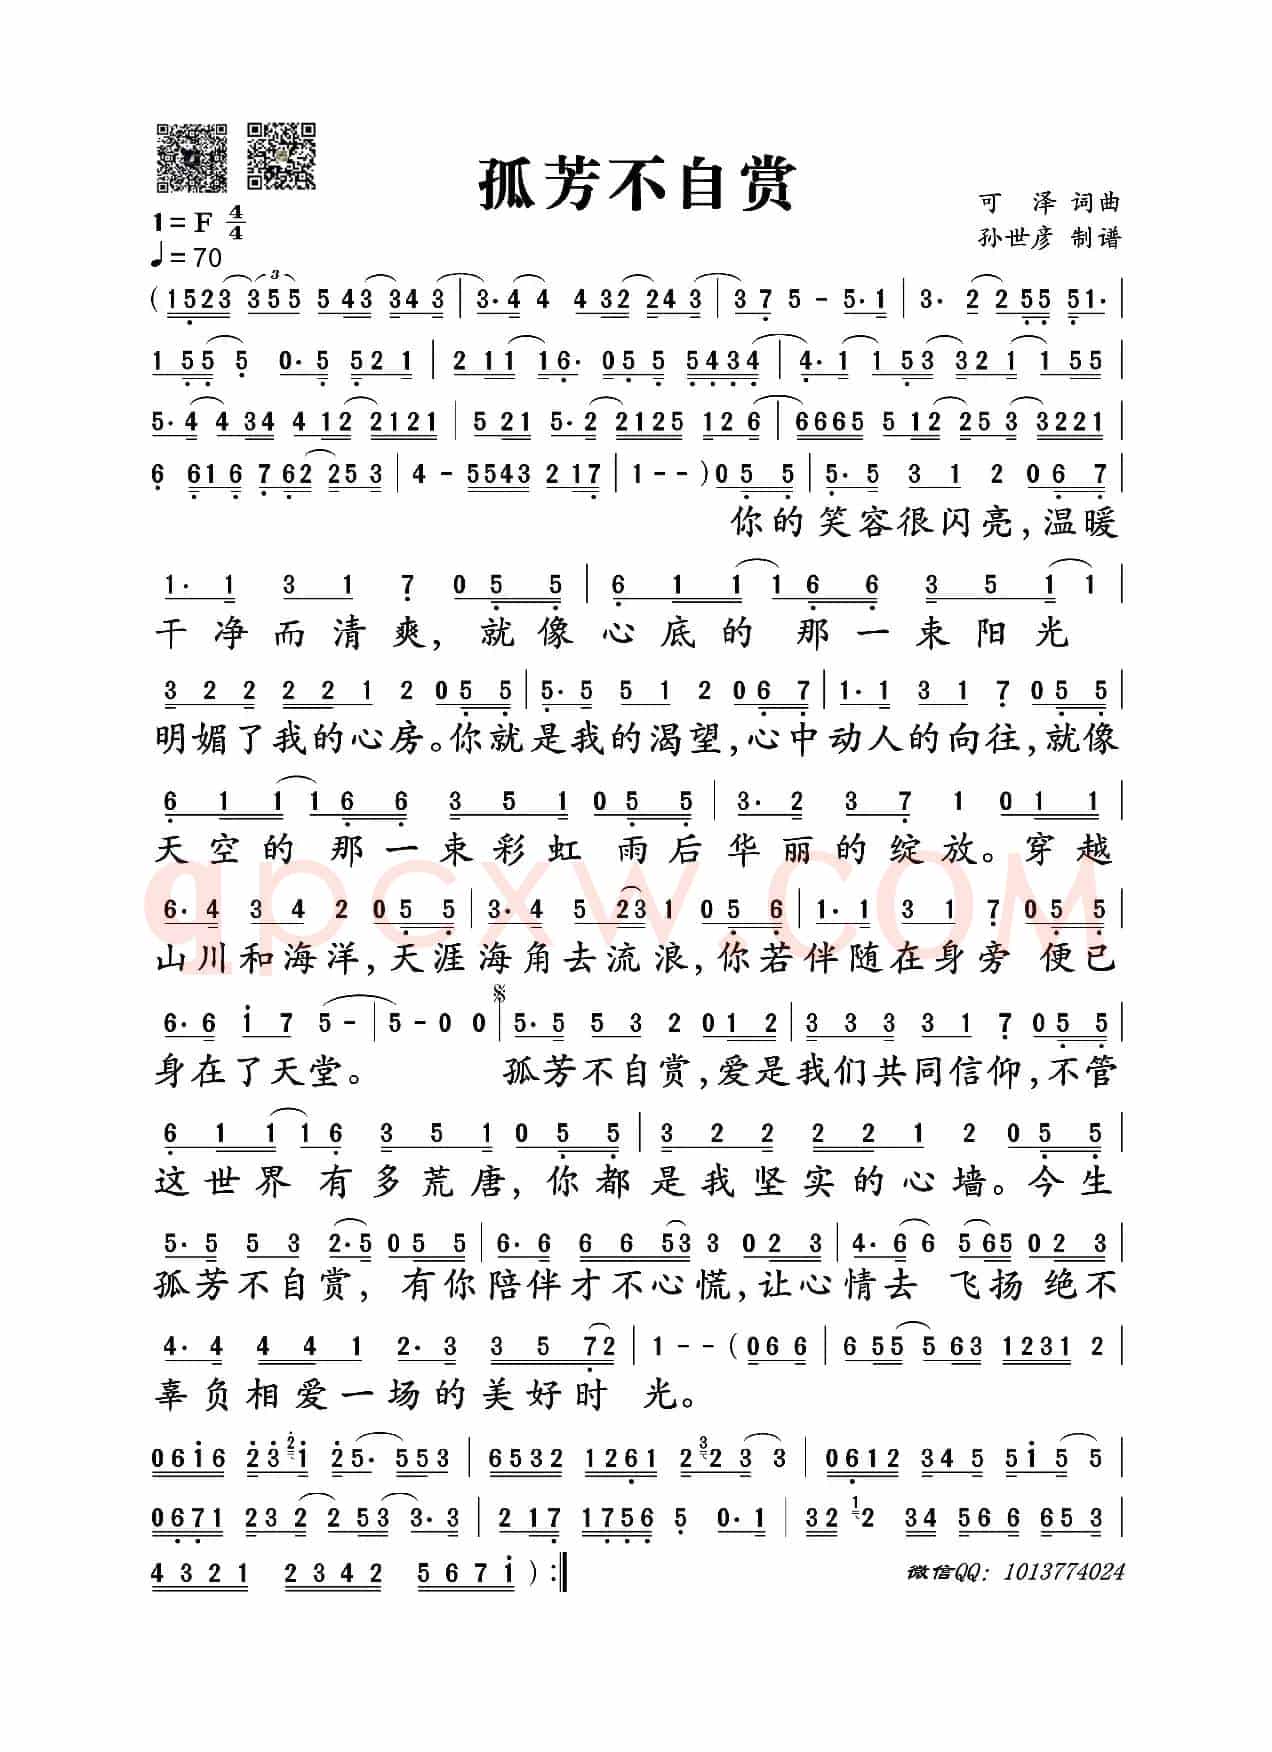 孤芳不自赏
可 泽 词曲
1=F 4/4
孙世彦 制谱
♩=70
(1523 355 543 343 | 3·4 4 432 243 | 37 5 - 5·1 | 3· 2 2 55 51· |
1 55 5 0·5 521 | 2 11 16· 055 5434 | 4·1 153 321 155 |
5·4 434 412 2121 | 5 21 5·2 2125 126 | 6665 512 253 3221 |
6 616 762 253 | 4 - 5543 217 | 1 - - ) 055 | 5·5 31 2 067 |
你的笑容很闪亮,温暖
1·1 31 7 055 | 611 166 351 1 |
干净而清爽,就像心底的那一束阳光
322 221 2 055 | 5·5 51 2 067 | 1·1 31 7 055 |
明媚了我的心房。你就是我的渴望,心中动人的向往,就像
611 166 351 055 | 3·2 37 1 011 |
天空的那一束彩虹雨后华丽的绽放。穿越
qpcxw.COM
6·4 34 2 055 | 3·4 5231 056 | 1·1 31 7 055 |
山川和海洋,天涯海角去流浪,你若伴随在身旁 便已
6·6 i7 5 - | 5 - 0 0 | 5·5 53 2 012 | 333 31 7 055 |
身在了天堂。 孤芳不自赏,爱是我们共同信仰,不管
611 16 351 055 | 322 221 2 055 |
这世界有多荒唐,你都是我坚实的心墙。今生
5·5 53 2·5 055 | 6·6 6653 3 023 | 4·6 6 565 023 |
孤芳不自赏,有你陪伴才不心慌,让心情去 飞扬 绝不
4·4 441 2·3 3572 | 1 - - (066 | 655 563 1231 2 |
辜负相爱一场的美好时 光。
06i6 232i 25· 553 | 6532 1261 232 3 3 | 0612 345 5i5 5 |
0671 232 253 3·3 | 217 1756 5 0·1 | 32 12 34 566 653 |
4321 2342 567i ) :‖
微信QQ: 1013774024